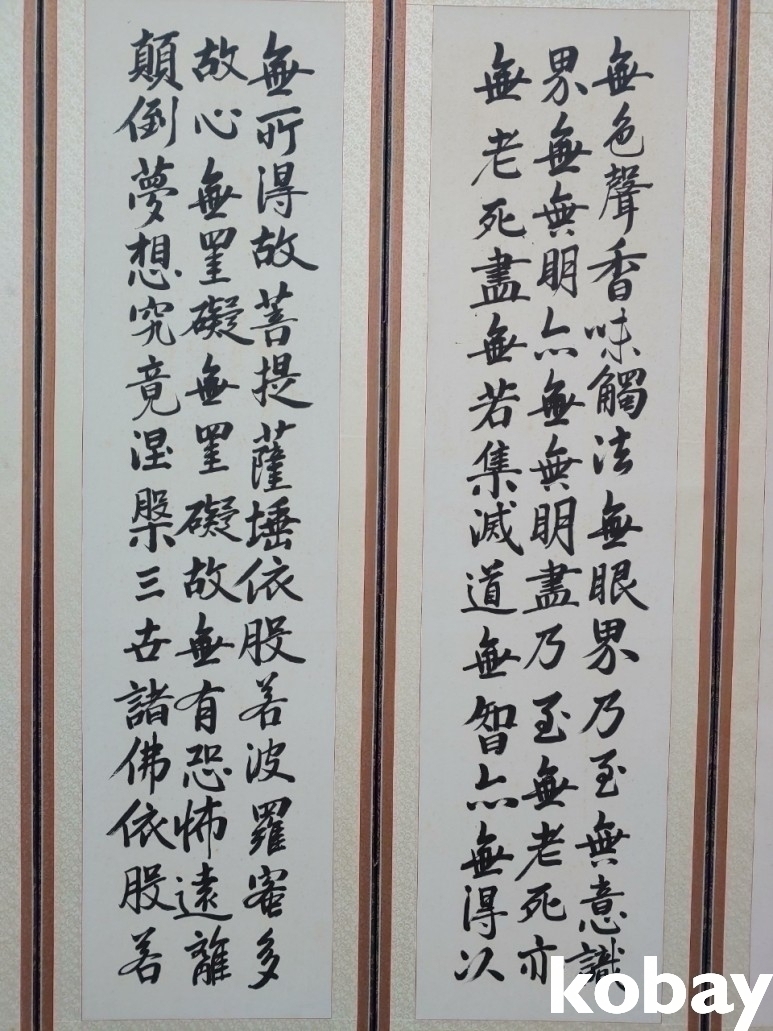 無色聲香味觸法無眼界乃至無意識
界無無明亦無無明盡乃至無老死亦
無老死盡無若集滅道無智亦無得以
無所得故菩提薩埵依股若波羅蜜多
故心無罣礙無罣礙故無有恐怖遠離
顛倒夢想究竟涅槃三世諸佛依股若
kobay